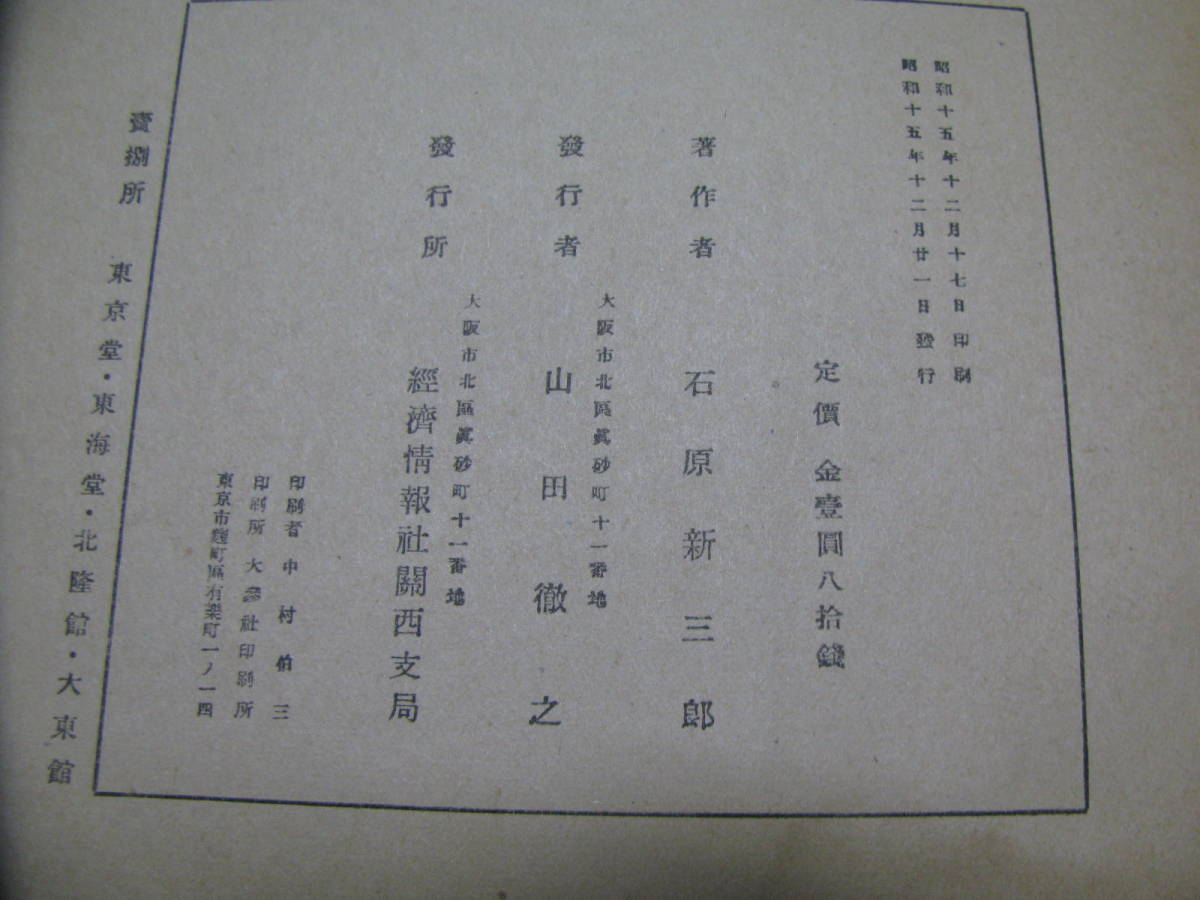 昭和十五年十二月十七日印刷
昭和十五年十二月廿一日發行
定價 金壹圓八拾錢
著作者 石原新三郎
大阪市北區眞砂町十一番地
發行者 山田徹之
大阪市北區眞砂町十一番地
發行所 經濟情報社關西支局
印刷者 中村伯三
印刷所 大參社印刷所
東京市麴町區有樂町一ノ一四
賣捌所 東京堂・東海堂・北隆館・大東館